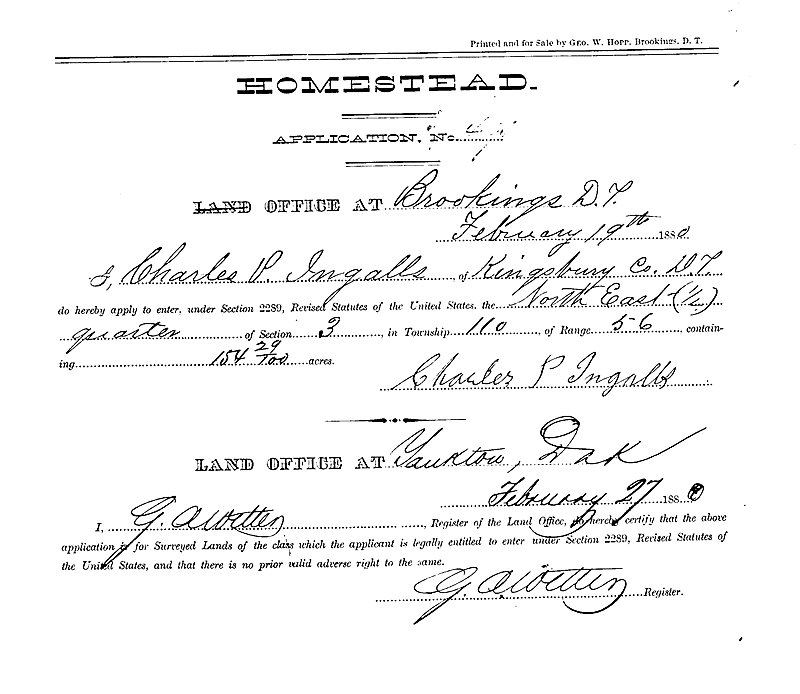 Printed and for Sale by Geo. W. Hopp, Brookings, D. T.
HOMESTEAD.
APPLICATION, No.
LAND OFFICE AT Brookings D.T.
February 19th 1880
I, Charles P. Ingalls of Kingsbury Co. D.T.
do hereby apply to enter, under Section 2289, Revised Statutes of the United States, the North East (1/4)
quarter of Section 3, in Township 110 of Range 56 contain-
ing 154 29/100 acres.
Charles P Ingalls
LAND OFFICE AT Yankton, Dak
February 27 1880
I, G. A. Wetter, Register of the Land Office, do hereby certify that the above
application is for Surveyed Lands of the class which the applicant is legally entitled to enter under Section 2289, Revised Statutes of
the United States, and that there is no prior valid adverse right to the same.
G. A. Wetter Register.